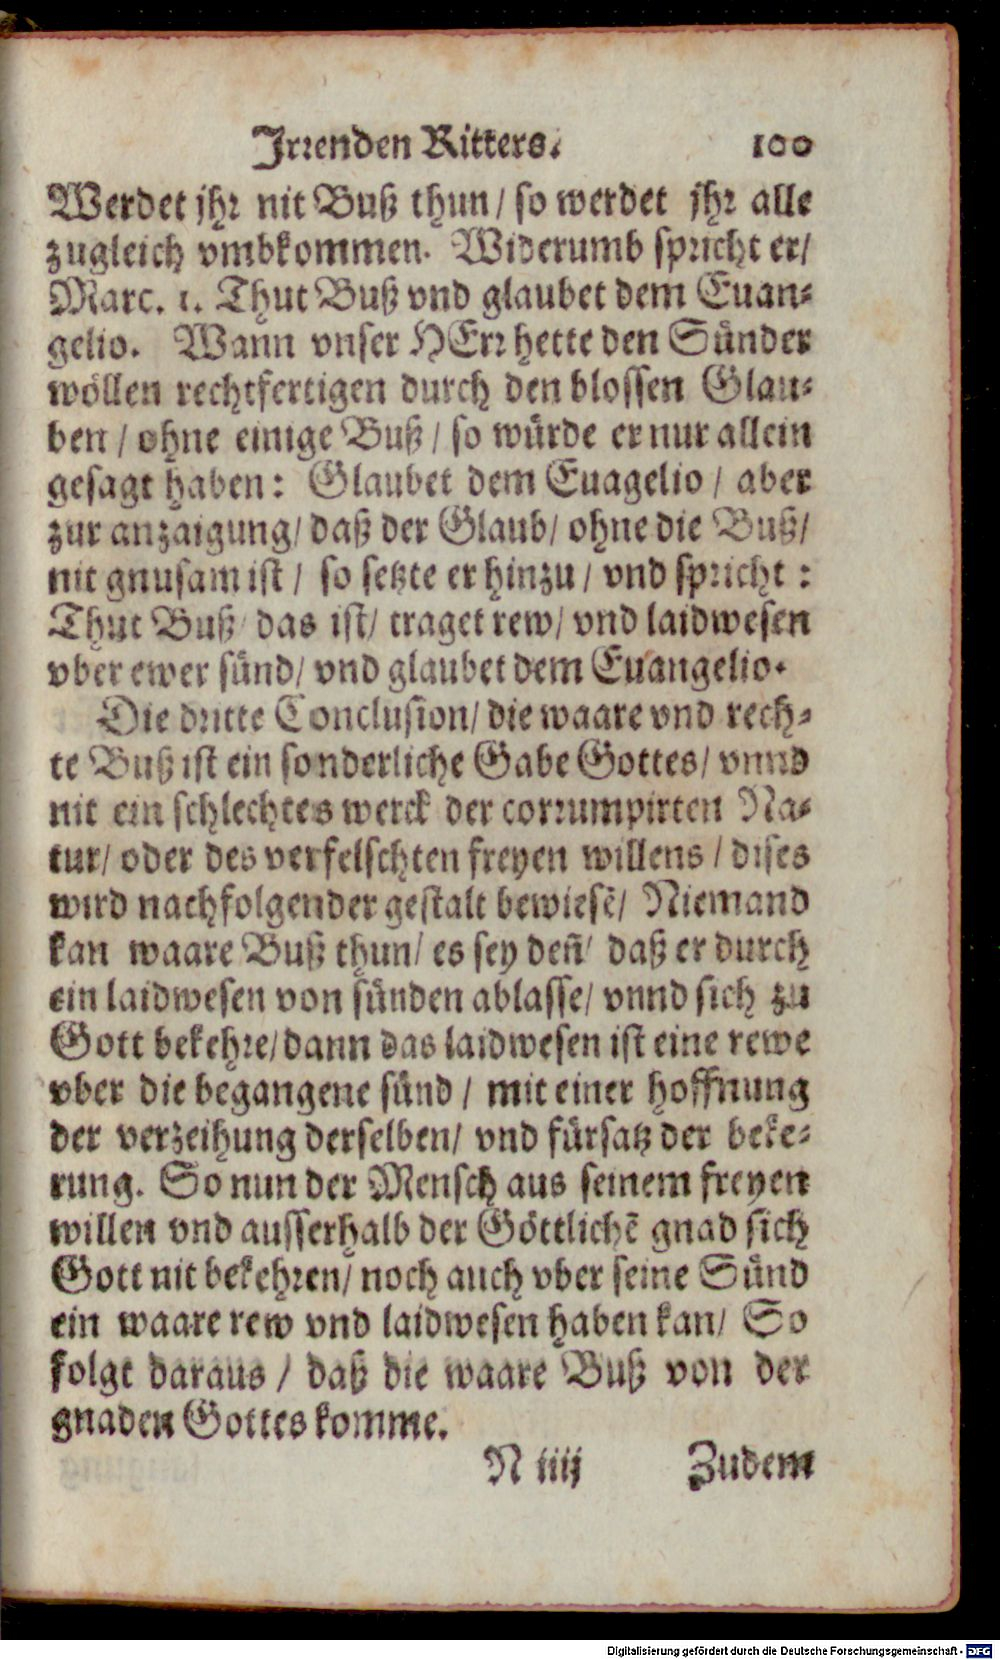 Irrenden Ritters. 100
Werdet jhr nit Buß thun / so werdet jhr alle
zugleich vmbkommen. Widerumb spricht er/
Marc. 1. Thut Buß vnd glaubet dem Euan-
gelio. Wann vnser HErr hette den Sünder
wöllen rechtfertigen durch den blossen Glau-
ben / ohne einige Buß / so würde er nur allein
gesagt haben: Glaubet dem Euagelio / aber
zur anzaigung/ daß der Glaub/ ohne die Buß/
nit gnusam ist / so setzte er hinzu / vnd spricht :
Thut Buß/ das ist/ traget rew/ vnd laidwesen
vber ewer sünd/ vnd glaubet dem Euangelio.
Die dritte Conclusion/ die waare vnd rech-
te Buß ist ein sonderliche Gabe Gottes/ vnnd
nit ein schlechtes werck der corrumpirten Na-
tur/ oder des verfelschten freyen willens / dises
wird nachfolgender gestalt bewiesẽ/ Niemand
kan waare Buß thun/ es sey deñ/ daß er durch
ein laidwesen von sünden ablasse/ vnnd sich zu
Gott bekehre/ dann das laidwesen ist eine rewe
vber die begangene sünd / mit einer hoffnung
der verzeihung derselben/ vnd fürsatz der beke-
rung. So nun der Mensch aus seinem freyen
willen vnd ausserhalb der Göttlichẽ gnad sich
Gott nit bekehren/ noch auch vber seine Sünd
ein waare rew vnd laidwesen haben kan/ So
folgt daraus / daß die waare Buß von der
gnaden Gottes komme.
N iiij Zudem
Digitalisierung gefördert durch die Deutsche Forschungsgemeinschaft - DFG